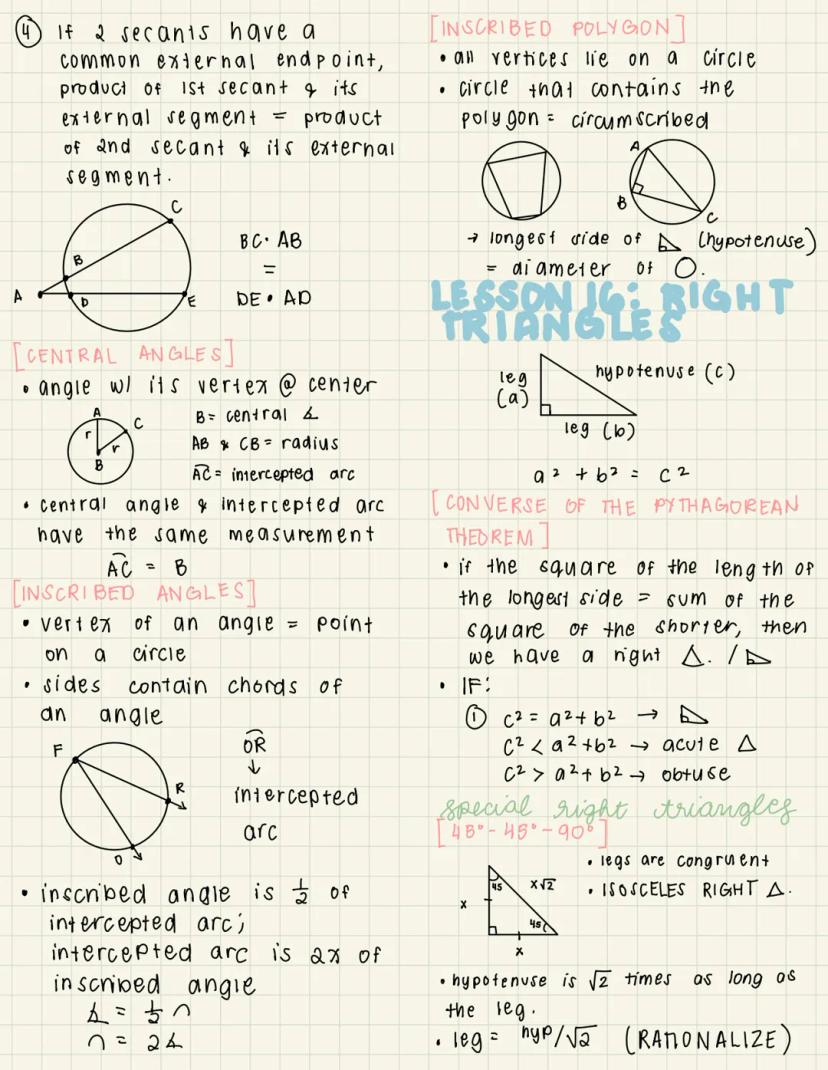 ④ If 2 secants have a
common external endpoint,
product of 1st secant & its
external segment = product
of 2nd secant & its external
segment.
C
B
A
D
E
BC · AB
=
DE · AD
[CENTRAL ANGLES]
• angle w/ its vertex @ center
A
C
r
r
B
B = central ∡
AB & CB = radius
A͡C = intercepted arc
• central angle & intercepted arc
have the same measurement
A͡C = B
[INSCRIBED ANGLES]
• vertex of an angle = point
on a circle
• sides contain chords of
an angle
F
R
O
O͡R
↓
intercepted
arc
• inscribed angle is 1/2 of
intercepted arc;
intercepted arc is 2x of
inscribed angle
∡ = 1/2 ∩
∩ = 2∡
[INSCRIBED POLYGON]
• all vertices lie on a circle
• circle that contains the
polygon = circumscribed
A
B
C
→ longest side of ◺ (hypotenuse)
= diameter of ○.
LESSON 16: RIGHT
TRIANGLES
leg
(a)
hypotenuse (c)
leg (b)
a² + b² = c²
[CONVERSE OF THE PYTHAGOREAN
THEOREM]
• if the square of the length of
the longest side = sum of the
square of the shorter, then
we have a right △. / ◺
• IF:
① c² = a² + b² → ◺
c² < a² + b² → acute △
c² > a² + b² → obtuse
special right triangles
[45° - 45° - 90°]
45
x√2
x
45
x
• legs are congruent
• ISOSCELES RIGHT △.
• hypotenuse is √2 times as long as
the leg.
• leg = hyp/√2 (RATIONALIZE)